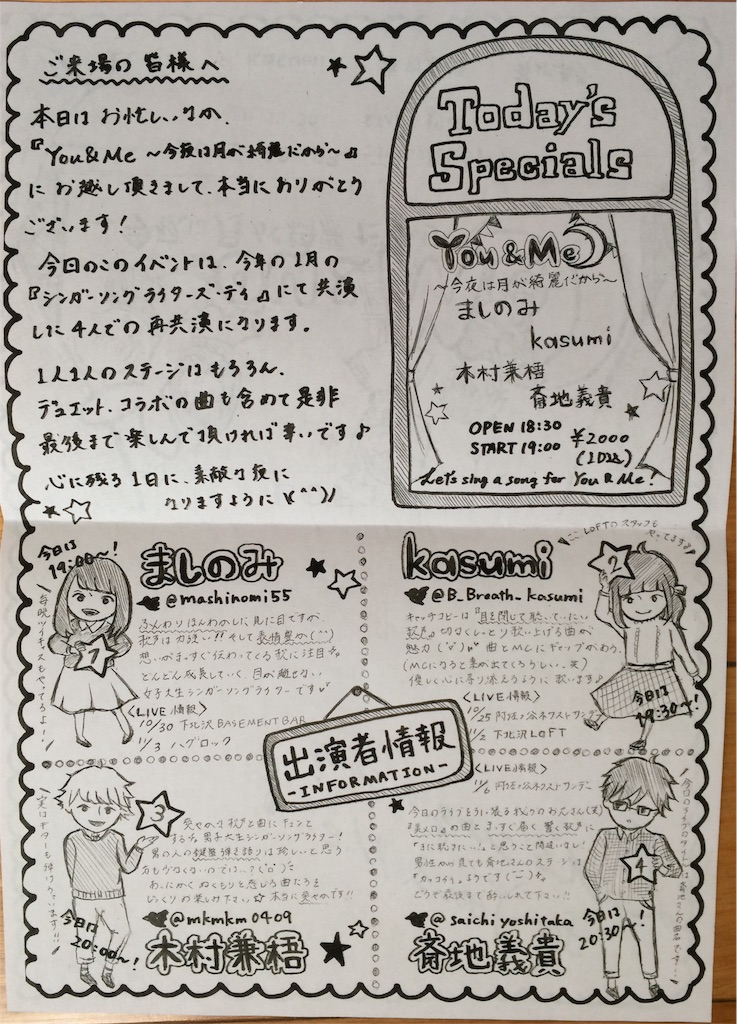 ご来場の皆様へ
本日はお忙しいなか、
『You&Me ～今夜は月が綺麗だから～』
にお越し頂きまして、本当にありがとう
ございます！
今日のこのイベントは、今年の1月の
『シンガーソングライターズ・デイ』にて共演
した4人での再共演になります。
1人1人のステージはもちろん、
デュエット、コラボの曲も含めて是非
最後まで楽しんで頂ければ幸いです♪
心に残る1日に、素敵な夜に
なりますように\(^^)/
Today's
Specials
You&Me
～今夜は月が綺麗だから～
ましのみ
kasumi
木村兼梧
斎地義貴
OPEN 18:30
START 19:00
¥2000
(1D込)
Let's sing a song for You & Me!
今日は
19:00～!
毎晩ツイキスもやってるよ！
1
ましのみ
@mashinomi55
ふんわりほんわかした見た目ですが
歌声は力強い!!そして表情豊か(^^)
想いがまっすぐ伝わってくる歌に注目♪
どんどん成長していく、目が離せない
女子大生シンガーソングライターです
〈LIVE情報〉
10/30 下北沢 BASEMENT BAR
11/3 ヘブロック
ここLOFTのスタッフも
やってます♪
2
kasumi
@B_Breath_kasumi
キャッチコピーは『目を閉じて聴いていたい
歌声』切なくしっとり歌い上げる曲が
魅力 曲とMCにギャップがあり、
(MCになると素が出てくるらしい、笑)
優しく心に寄り添えるように歌います♪
〈LIVE情報〉
10/25 阿佐ヶ谷ネクストサンデー
11/2 下北沢LOFT
今日は
19:30～!
出演者情報
-INFORMATION-
3
実はギターも弾けちゃいます!!!
爽やかな歌声と曲にキュンと
する♪男子大生シンガーソングライター！
男の人の鍵盤弾き語りは珍しいと思う
方も少なくないのでは…？
あたたかくぬくもりを感じる曲たちを
じっくりお楽しみ下さい☆本当に爽やかです!!
@mkmkm0409
木村兼梧
今日は
20:00～!
〈LIVE情報〉
11/6 阿佐ヶ谷ネクストサンデー
今日のライブを引っ張る我々のお兄さん(笑)
『美メロ』の曲とまっすぐ届く響く歌声に
「また聴きたい…」と思うこと間違いなし！
男性から見ても斎地さんのステージは
『カッコイイ』ようです
どうぞ最後まで酔いしれて下さい!!
@saichiyoshitaka
斎地義貴
今日は
20:30～!
4
今日のライブのタイトルは斎地さんの曲名です！